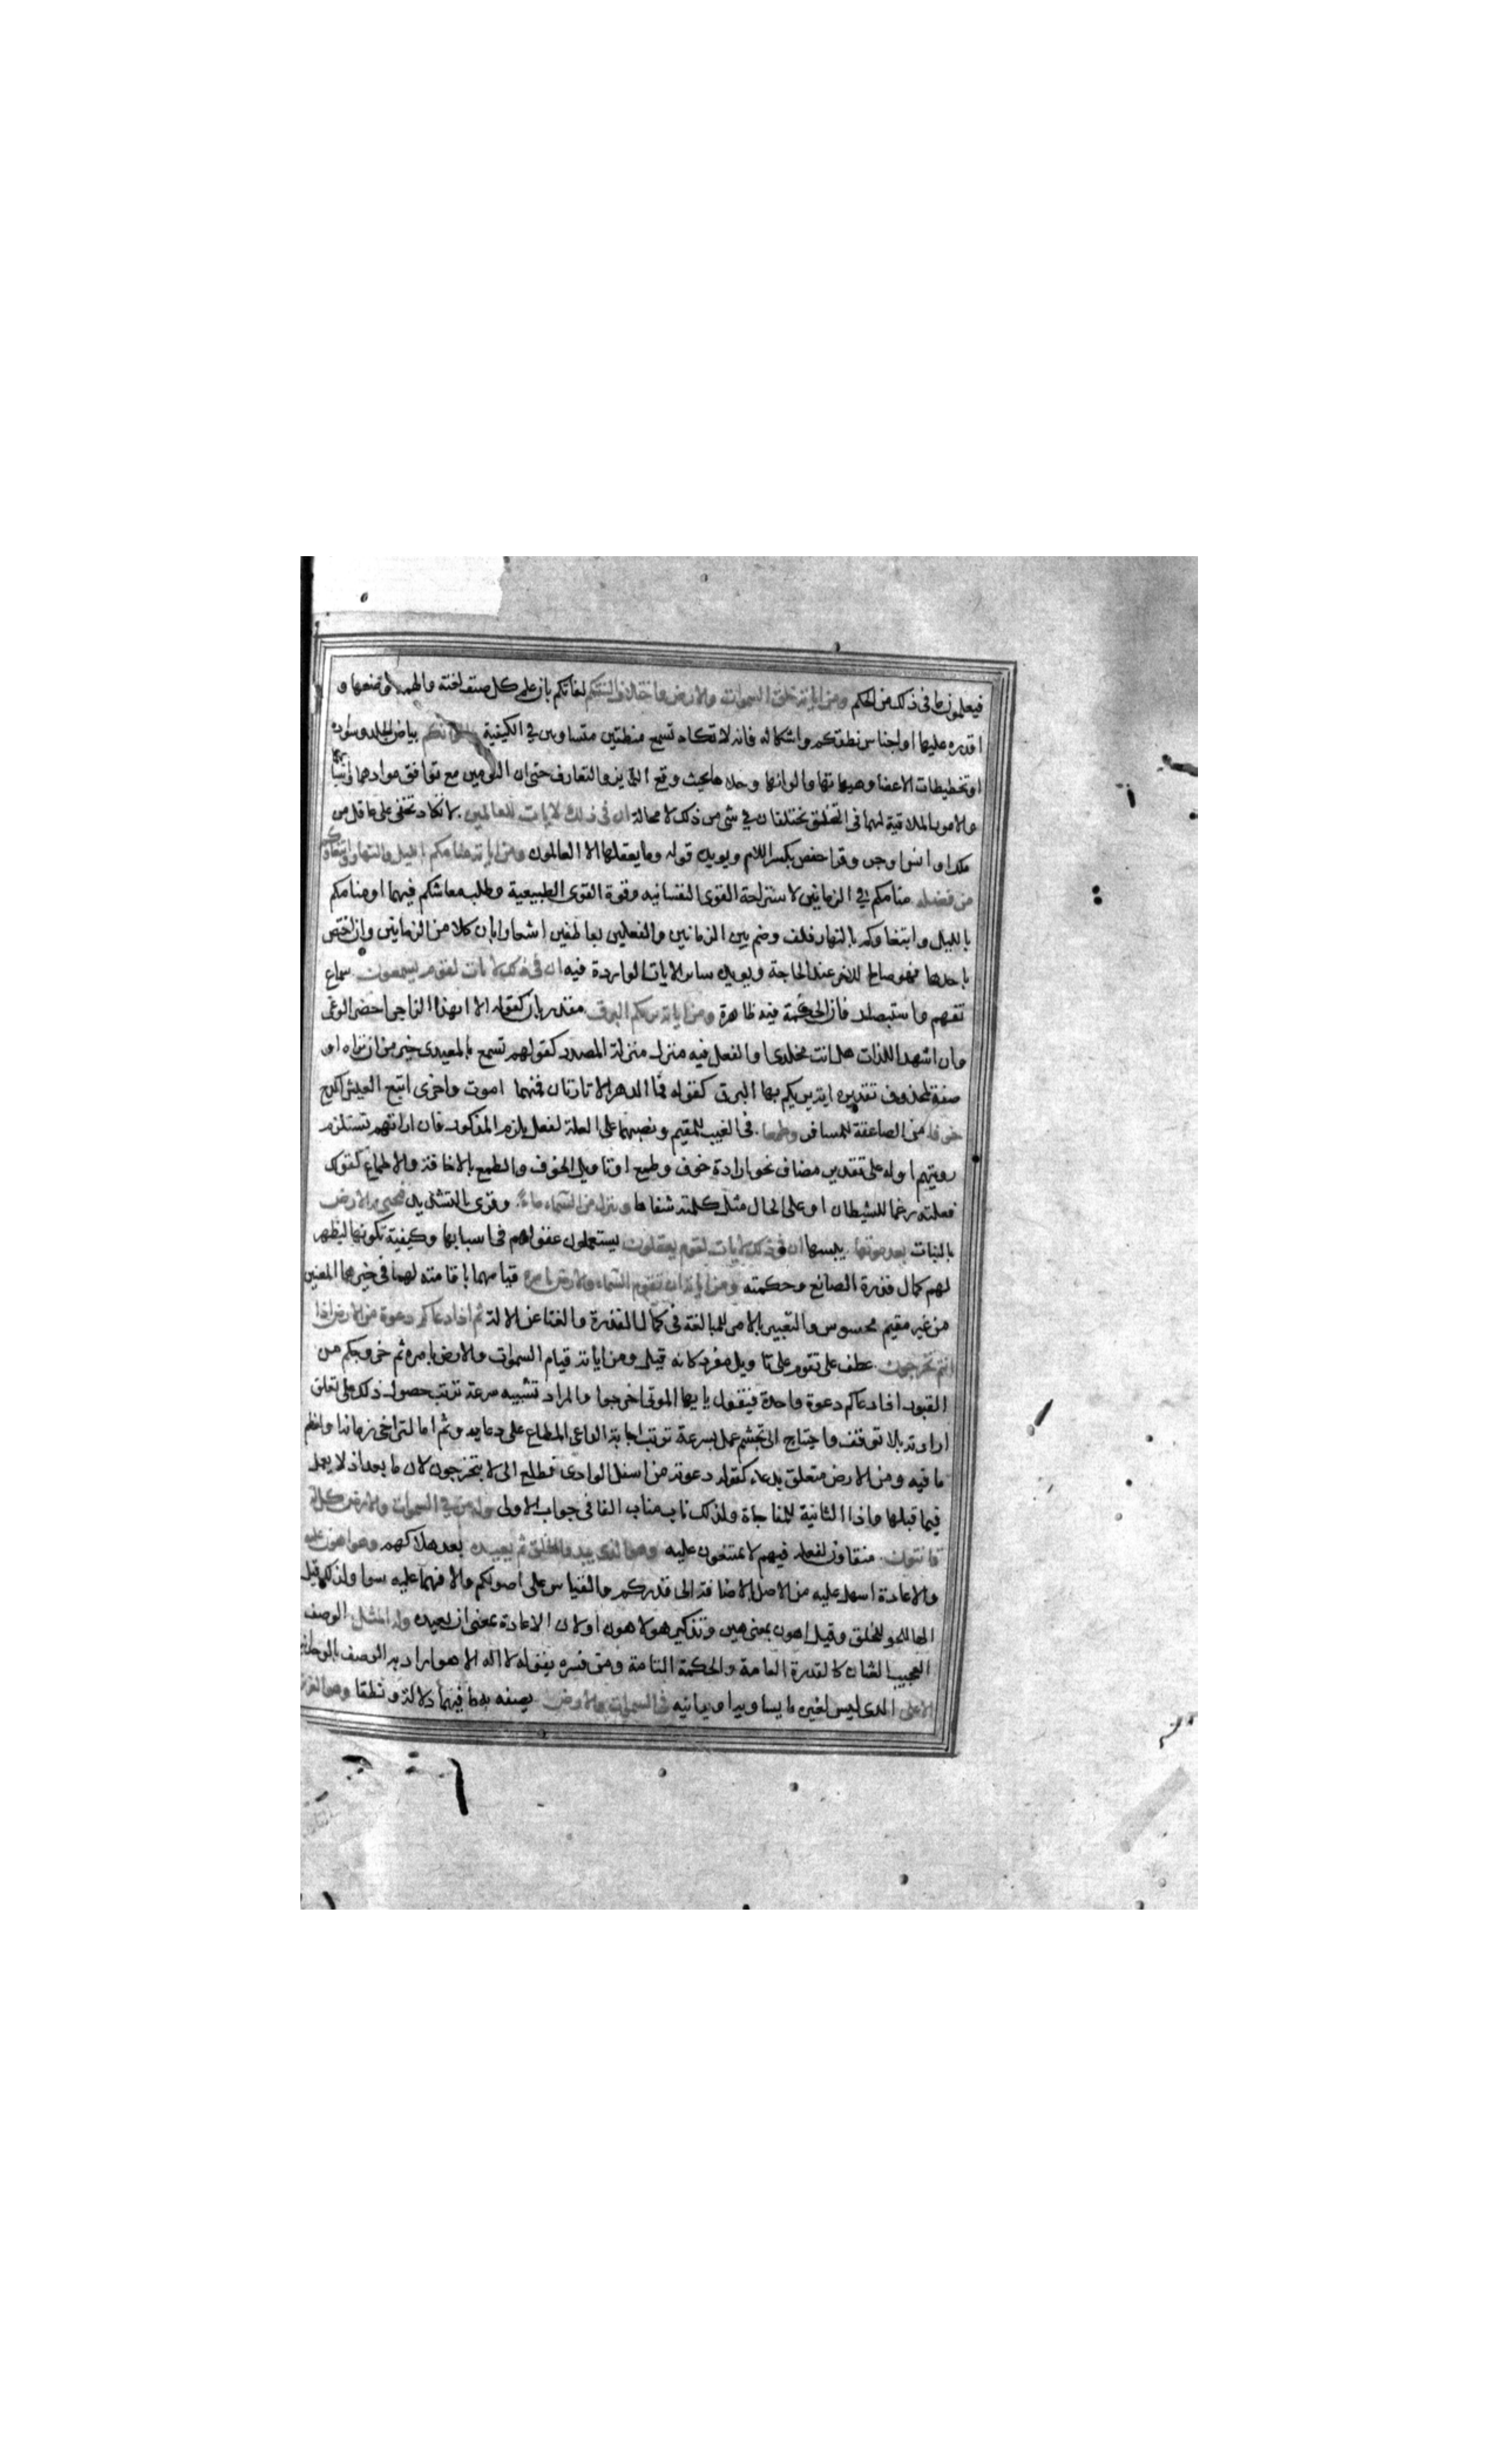 فيعلمون ما فى ذلك من الحكم ومن اياته خلق السموات والارض واختلاف السنتكم لغاتكم بان علم كل صنف لغته والهمه وضعها و
اقدره عليها او اجناس نطقكم واشكاله فانه لا تكاد تسمع منطقين متساويين في الكيفية والوانكم بياض الجلد وسواده
او تخطيطات الاعضا وهيئاتها والوانها وحلاها بحيث وقع التمايز والتعارف حتى ان التومين مع توافق موادهما واسبابهما
والامور الملاقية لهما فى التخليق يختلفان في شى من ذلك لا محالة ان فى ذلك لايات للعالمين لا تكاد تخفى على عاقل من
ملك او انس او جن وقرا حفص بكسر اللام ويويده قوله وما يعقلها الا العالمون ومن اياته منامكم بالليل والنهار وابتغاوكم
من فضله منامكم في الزمانين لاستراحة القوى النفسانيه وقوة القوى الطبيعية وطلب معاشكم فيهما او منامكم
بالليل وابتغاوكم بالنهار فلف وضم بين الزمانين والفعلين بعاطفين اشعارا بان كلا من الزمانين وان اختص
باحدهما فهو صالح للاخر عند الحاجة ويويده ساير الايات الواردة فيه ان فى ذلك لايات لقوم يسمعون سماع
تفهم واستبصار فان الحكمة فيه ظاهرة ومن اياته يريكم البرق مقدر بان كقوله الا ايهذا الزاجرى احضر الوغى
وان اشهد اللذات هل انت مخلدى او الفعل فيه منزل منزلة المصدر كقولهم تسمع بالمعيدى خير من ان تراه او
صفة لمحذوف تقديره اية يريكم بها البرق كقوله فما الدهر الا تارتان فمنهما اموت واخرى ابتغ العيش اكدح
خوفا من الصاعقة للمسافر وطمعا فى الغيث للمقيم ونصبهما على العلة لفعل يلزم المذكور فان اراتهم تستلزم
رويتهم او له على تقدير مضاف نحو ارادة خوف وطمع او تاويل الخوف والطمع بالاخافة والاطماع كقولك
فعلته رغما للشيطان او على الحال مثل كلمته شفاها وينزل من السماء ماء وقرى بالتشديد فيحيى به الارض
بالنبات بعد موتها يبسها ان فى ذلك لايات لقوم يعقلون يستعملون عقولهم فى اسبابها وكيفية تكونها ليظهر
لهم كمال قدرة الصانع وحكمته ومن اياته ان تقوم السماء والارض بامره قيامهما باقامته لهما فى حيزهما المعنين
من غير مقيم محسوس والتعبير بالامر للمبالغة فى كمال القدرة والغنا عن الالة ثم اذا دعاكم دعوة من الارض اذا
انتم تخرجون عطف على تقوم على تاويل مفرد كانه قيل ومن اياته قيام السموات والارض بامره ثم خروجكم من
القبور اذا دعاكم دعوة واحدة فيقول يا ايها الموتى اخرجوا والمراد تشبيه سرعة ترتب حصول ذلك على تعلق
ارادته بلا توقف واحتياج الى تجشم عمل بسرعة ترتب اجابة الداعى المطاع على دعايه وثم اما لتراخى زمانه او لعظم
ما فيه ومن الارض متعلق بدعاء كقوله دعوته من اسفل الوادى فطلع الى لا بتخرجون لان ما بعد اذ لا يعمل
فيما قبلها واذا الثانية للمفاجاة ولذلك ناب مناب الفا فى جواب الاولى وله من في السموات والارض كل له
قانتون منقادون لفعله فيهم لا يمتنعون عليه وهو الذى يبدو الخلق ثم يعيده بعد هلاكهم وهو اهون عليه
والاعادة اسهل عليه من الاصل بالاضافة الى قدركم والقياس على اصولكم والا فهما عليه سوا ولذلك قيل
الها للخلق وقيل اهون بمعنى هين وتذكير هو لاهون او لان الاعادة بمعنى ان يعيده وله المثل الوصف
العجيب الشان كالقدرة العامة والحكمة التامة ومن فسره بقوله لا اله الا هو اراد به الوصف بالوحدانية
الاعلى الذى ليس لغيره ما يساويه او يدانيه فى السموات والارض يصفه به ما فيهما دلالة ونطقا وهو العزيز